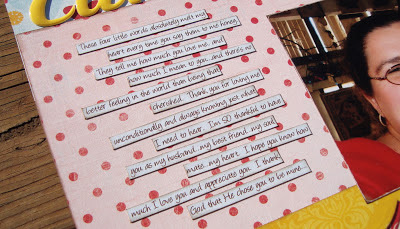 These four little words absolutely melt my
heart every time you say them to me honey.
They tell me how much you love me, and
how much I mean to you...and there's no
better feeling in the world than being that
cherished. Thank you for loving me
unconditionally and always knowing just what
I need to hear. I'm SO thankful to have
you as my husband...my best friend...my soul
mate...my heart. I hope you know how
much I love you and appreciate you. I thank
God that He chose you to be mine...